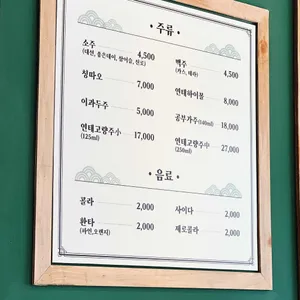 주류
소주 4,500
(대선, 좋은데이, 참이슬, 진로)
칭따오 7,000
이과두주 5,000
연태고량주小 17,000
(125ml)
맥주 4,500
(카스, 테라)
연태하이볼 8,000
공부가주(140ml) 18,000
연태고량주中 27,000
(250ml)
음료
콜라 2,000
환타 2,000
(파인,오렌지)
사이다 2,000
제로콜라 2,000